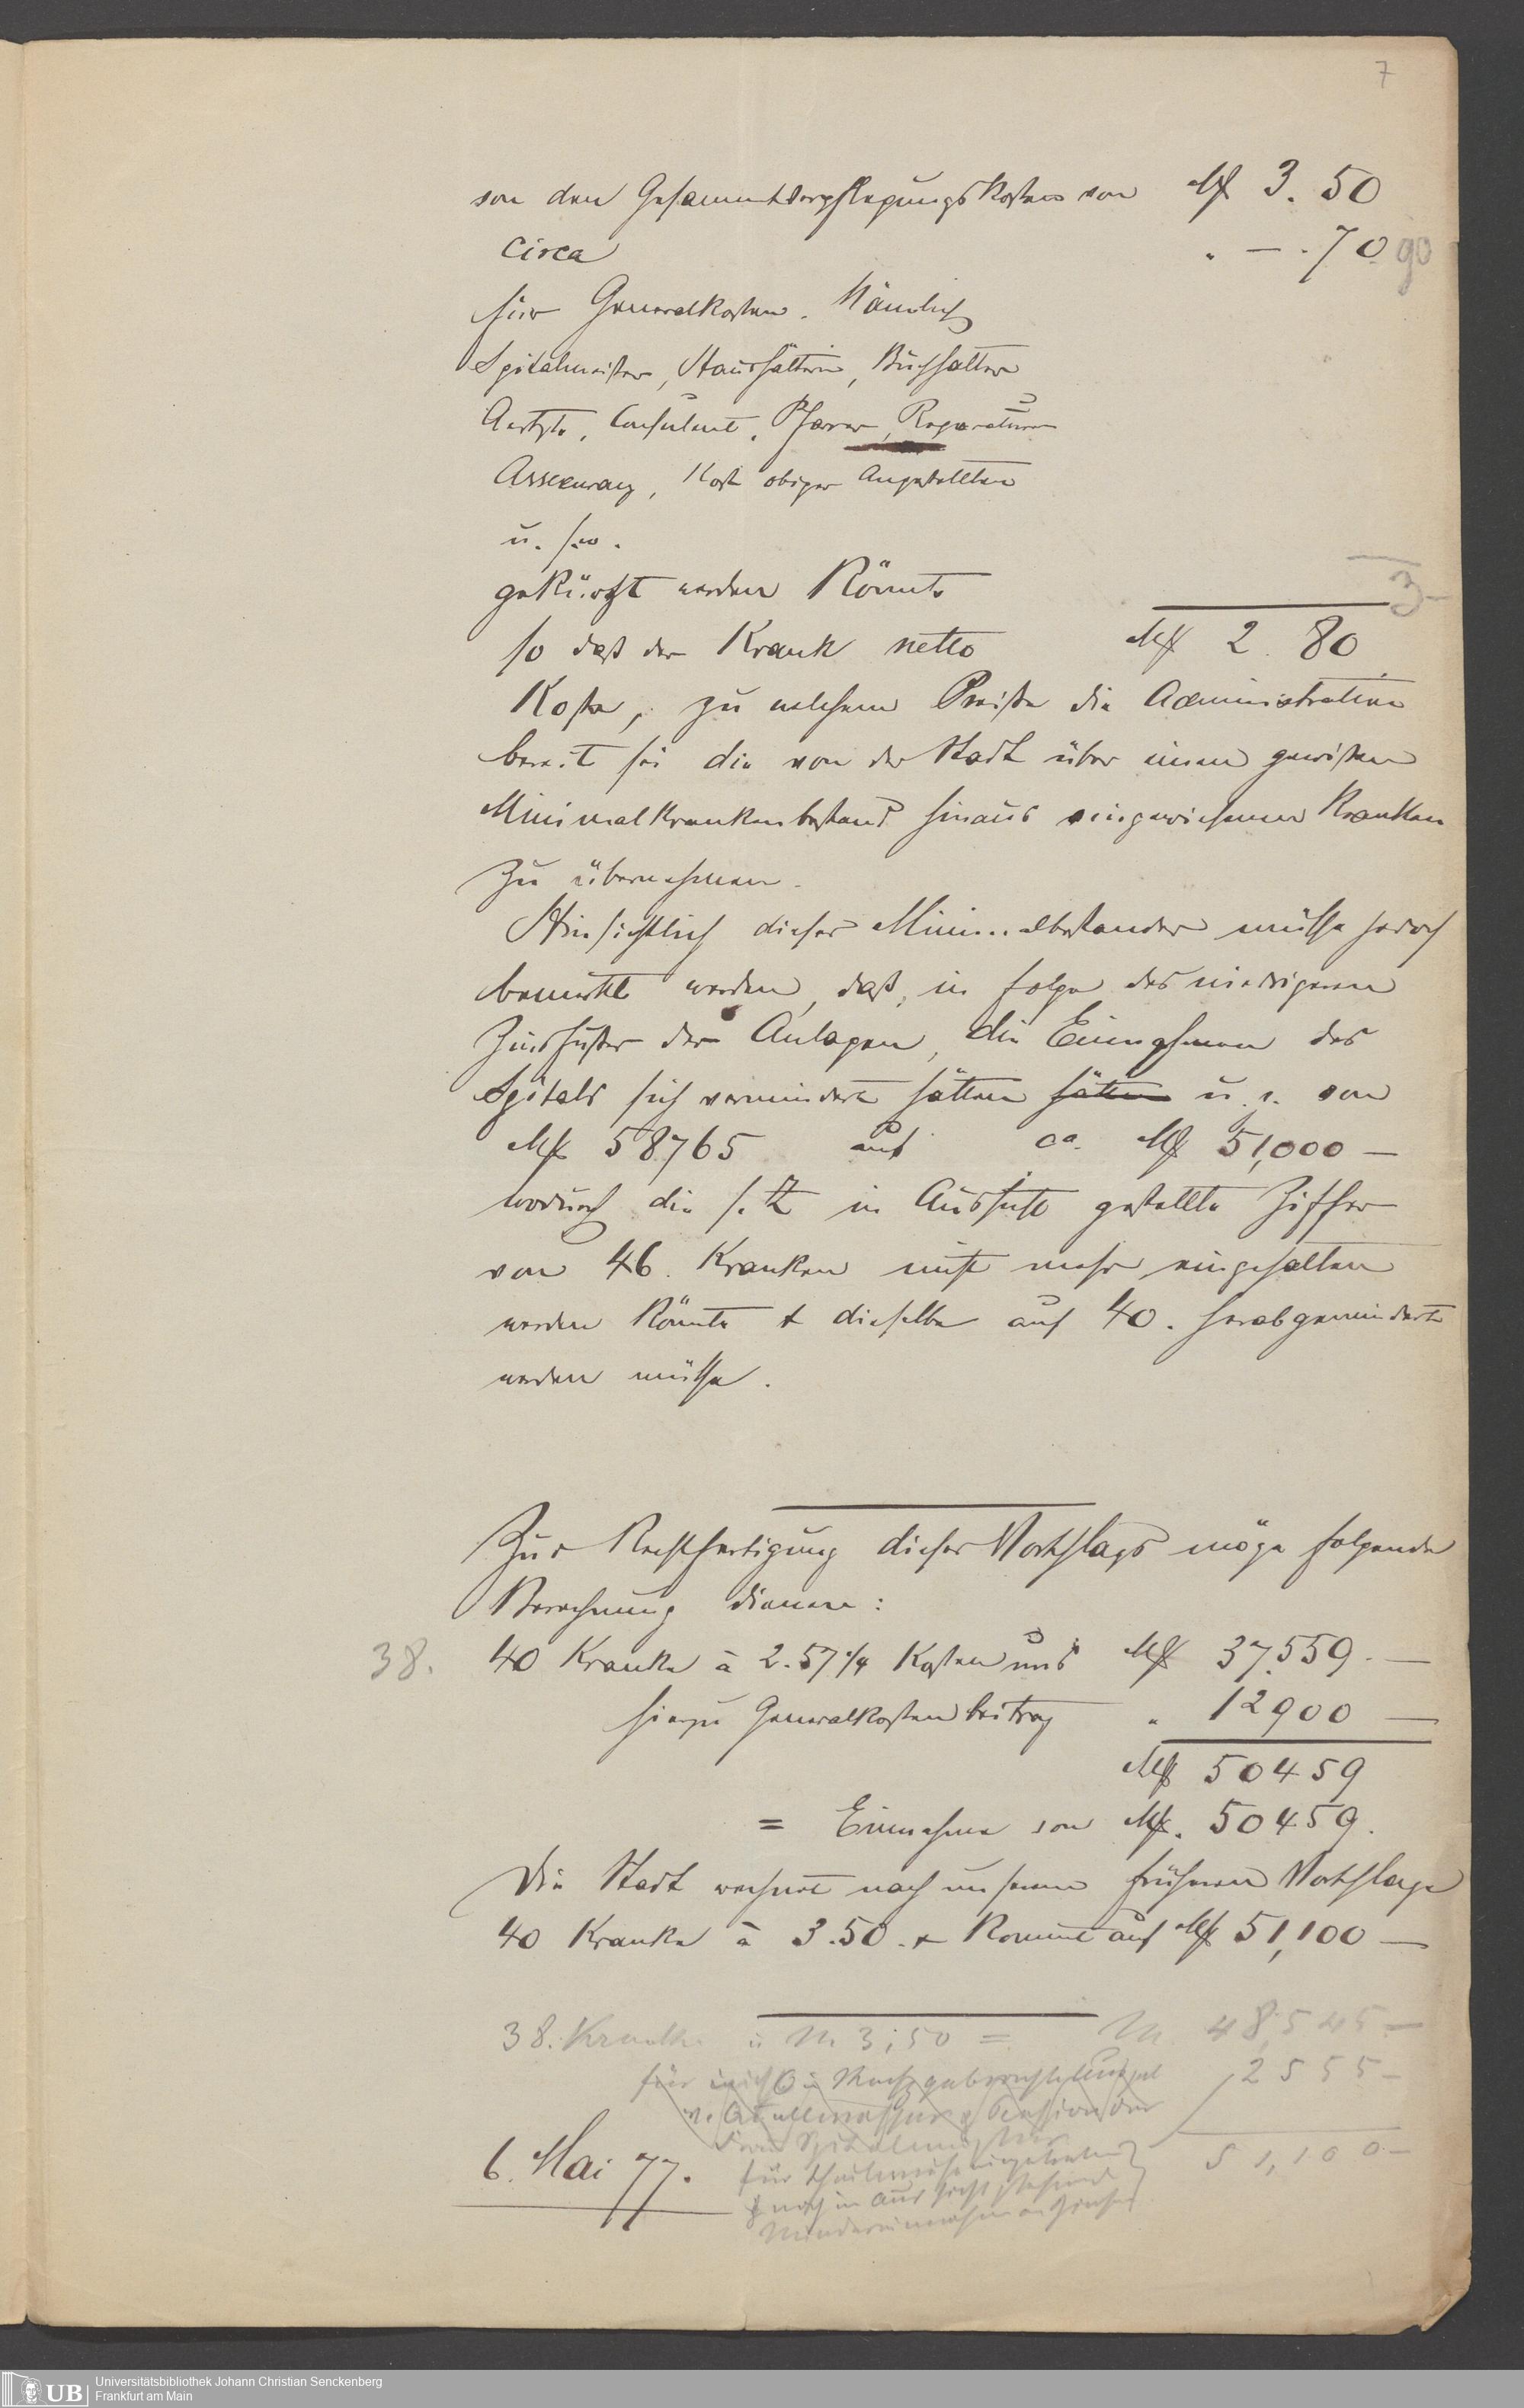 7
von den Gesammtverpflegungskosten von Mk 3. 50
circa " — . 70 90
für Generalkosten. Nämlich
Spitalmeister, Haushälterin, Buchhalter
Aertzte, Consulent, Pfarrer, Reparaturen
Assecuranz, Kost obiger Angestellten
u. s. w.
gekürtzt werden könnte 3-
so daß der Kranke netto Mk 2. 80
Koste, zu welchem Preiße die Administration
bereit sei die von der Stadt über einen gewißen
Minimalkrankenbestand hinaus eingewiesenen Kranken
zu übernehmen.
Hinsichtlich dieses Minimalbestandes müsse jedoch
bemerkt werden, daß, in Folge des niedrigeren
Zinsfußes der Anlagen, die Einnahmen des
Spitals sich vermindert hätten hätten u. z. von
Mk 58765 auf ca. Mk 51,000 —
wodurch die s. Z. in Aussicht gestellte Ziffer
von 46. Kranken nicht mehr eingehalten
werden könnte & dieselbe auf 40. herabgemindert
werden müsse.
Zur Rechtfertigung dieses Vorschlags möge folgende
Berechnung dienen:
38. 40 Kranke à 2.57 1/4 Kosten uns Mk 37,559. —
hiezu Generalkostenbeitrag " 12900 —
Mk 50459
= Einnahme von Mk. 50459.
Die Stadt rechnet nach unserem früheren Vorschlage
40 Kranke à 3.50. & kommt auf Mk 51,100 —
38. Kranke à M. 3,50 = M. 48,545.—
für 2555—
Pension der
Frau Spitalmeister
6. Mai 77. für theilweise eingetretene 51,100.—
& noch in Aussicht stehende
Mindereinnahme an Zinsen
UB Universitätsbibliothek Johann Christian Senckenberg
Frankfurt am Main